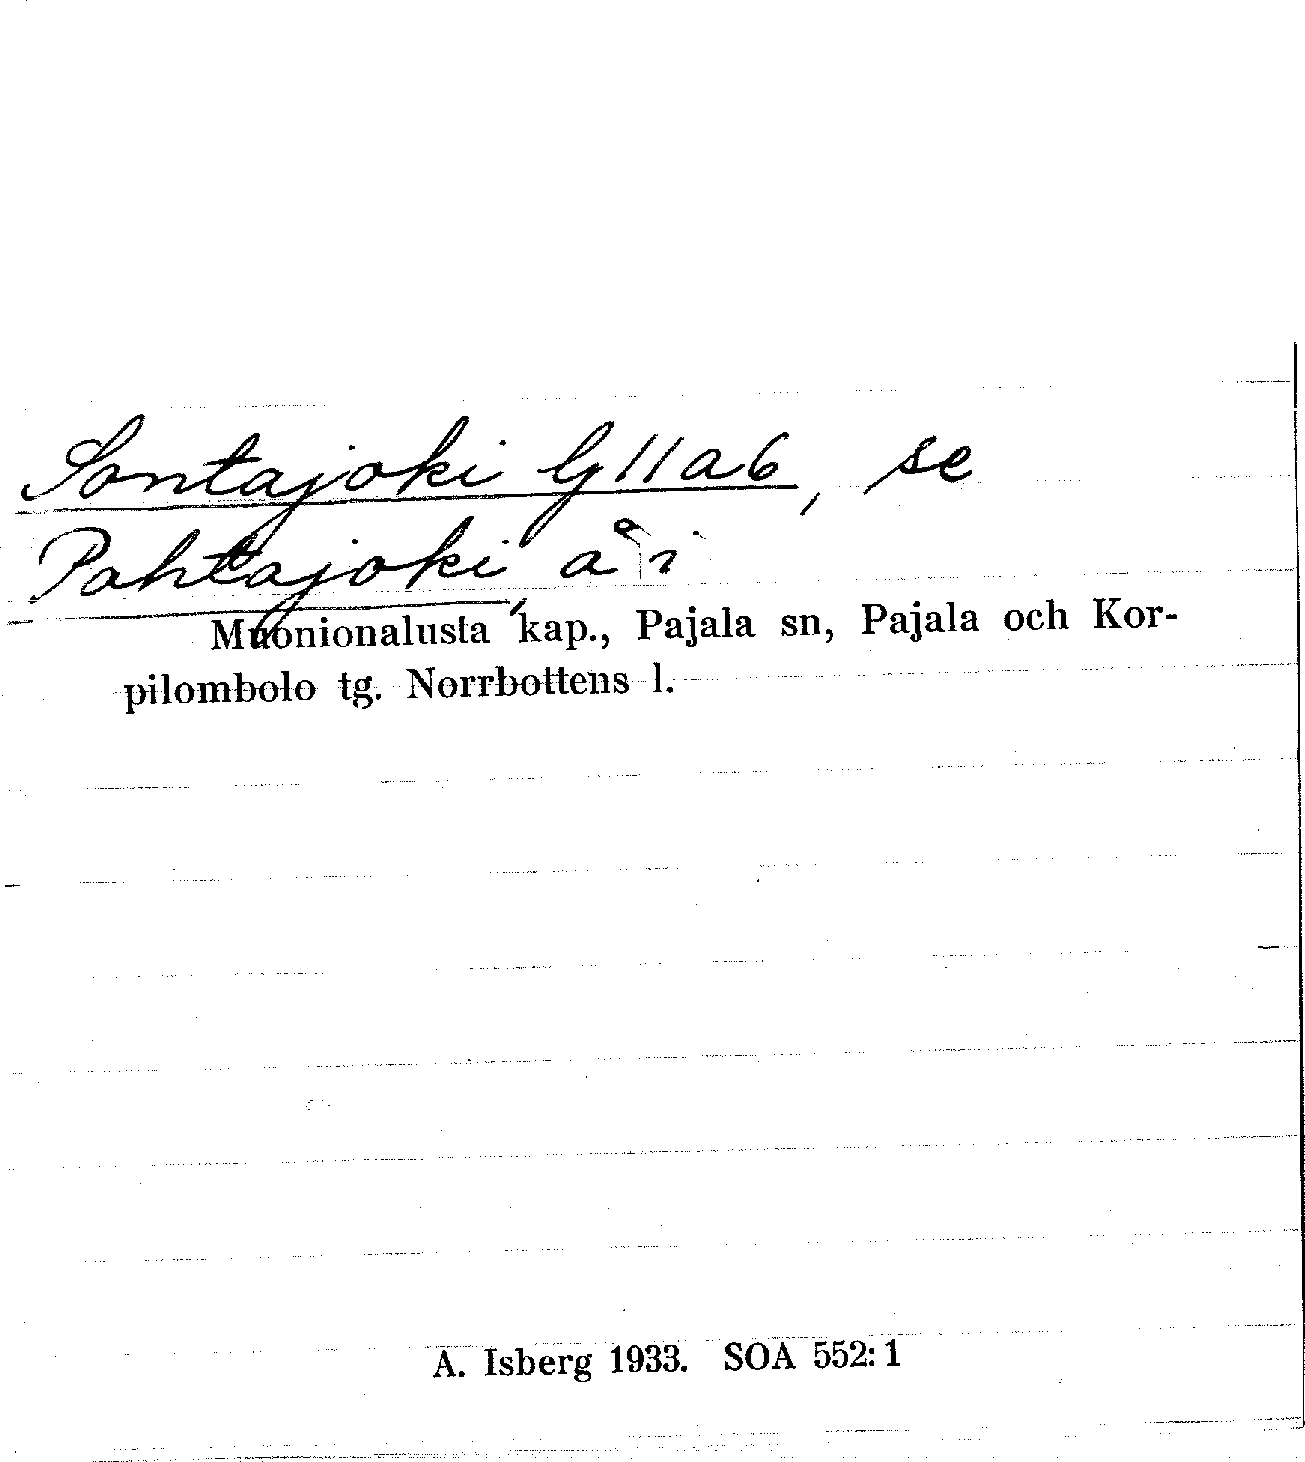 Sontajoki lj 11 a 6, se
Pahtajoki, å i
Muonionalusta kap., Pajala sn, Pajala och Kor-
pilombolo tg. Norrbottens l.
A. Isberg 1933. SOA 552:1